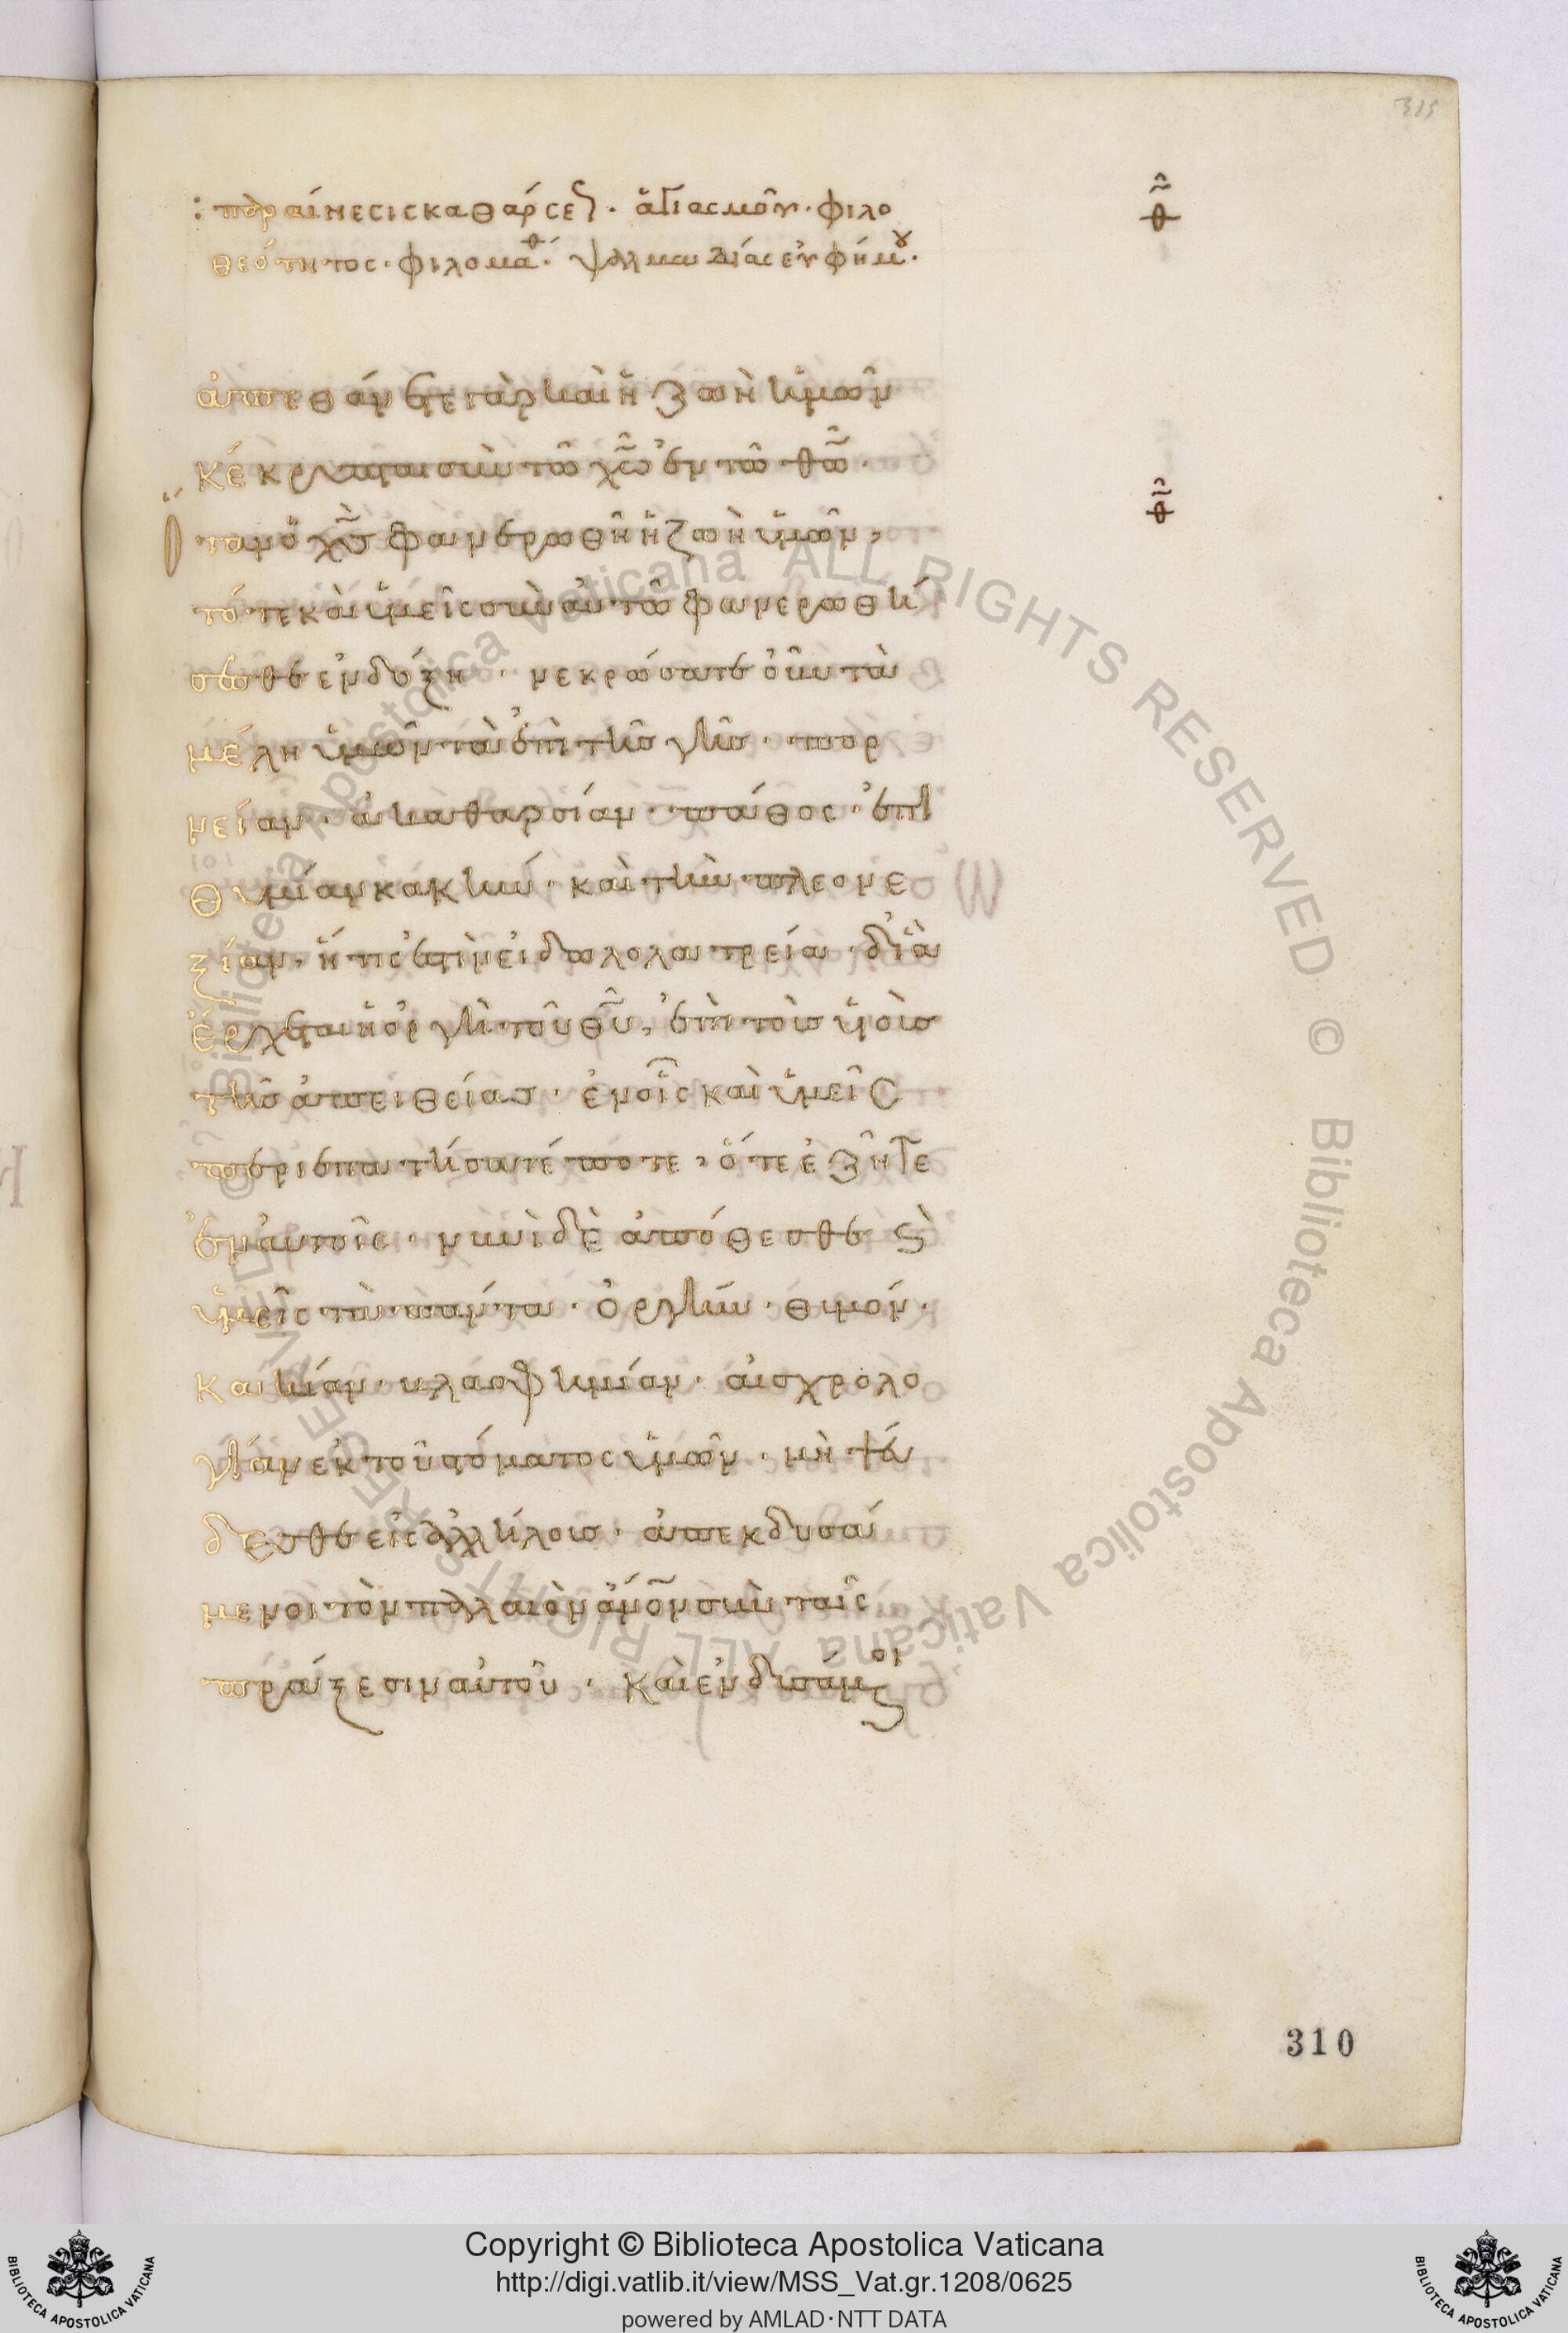 315
: παραίνεσις καθάρσε(ως) · ἁγιασμοῦ · φιλο
θεότητος · φιλομαθ · ψαλμωδίας εὐφήμου ·
ἀπεθάνετε γὰρ καὶ ἡ ζωὴ ἡμῶν
κέκρυπται σὺν τῶ χῶ ἐν τῶ θῶ ·
Ὅταν ὁ χς φανερωθῆ ἡ ζωὴ ὑμῶν,
τότε καὶ ὑμεῖς σὺν αὐτῶ φανερωθή
σεσθε ἐν δόξη · νεκρώσατε οὖν τὰ
μέλη ὑμῶν τὰ ἐπὶ τῆς γῆς · πορ
νείαν · ἀκαθαρσίαν · πάθος · ἐπι
θυμίαν κακήν · καὶ τὴν πλεονε
ξίαν, ἥτις ἐστὶν εἰδωλολατρεία · δι ἃ
ἔρχεται ἡ ὀργὴ τοῦ θυ, ἐπὶ τοὺς υἱοὺς
τῆς ἀπειθείας · ἐν οἷς καὶ ὑμεῖς
περιεπατήσατέ ποτε, ὅτε ἐζῆτε
ἐν αὐτοῖς · νυνὶ δὲ ἀπόθεσθε ϗ
ὑμεῖς τὰ πάντα · ὀργήν · θυμόν ·
κακίαν · βλασφημίαν · αἰσχρολο
γίαν ἐκ τοῦ στόματος ὑμῶν · μὴ ψεύ
δεσθε εἰς ἀλλήλους · ἀπεκδυσά
μενοι τὸν παλαιὸν ἄνον σὺν ταῖς
πράξεσιν αὐτοῦ · καὶ ἐνδυσάμενοι
310
Copyright © Biblioteca Apostolica Vaticana
http://digi.vatlib.it/view/MSS_Vat.gr.1208/0625
powered by AMLAD·NTT DATA
© Biblioteca Apostolica Vaticana ALL RIGHTS RESERVED © Biblioteca Apostolica Vaticana ALL RIGHTS RESERVED
BIBLIOTECA APOSTOLICA VATICANA
BIBLIOTECA APOSTOLICA VATICANA